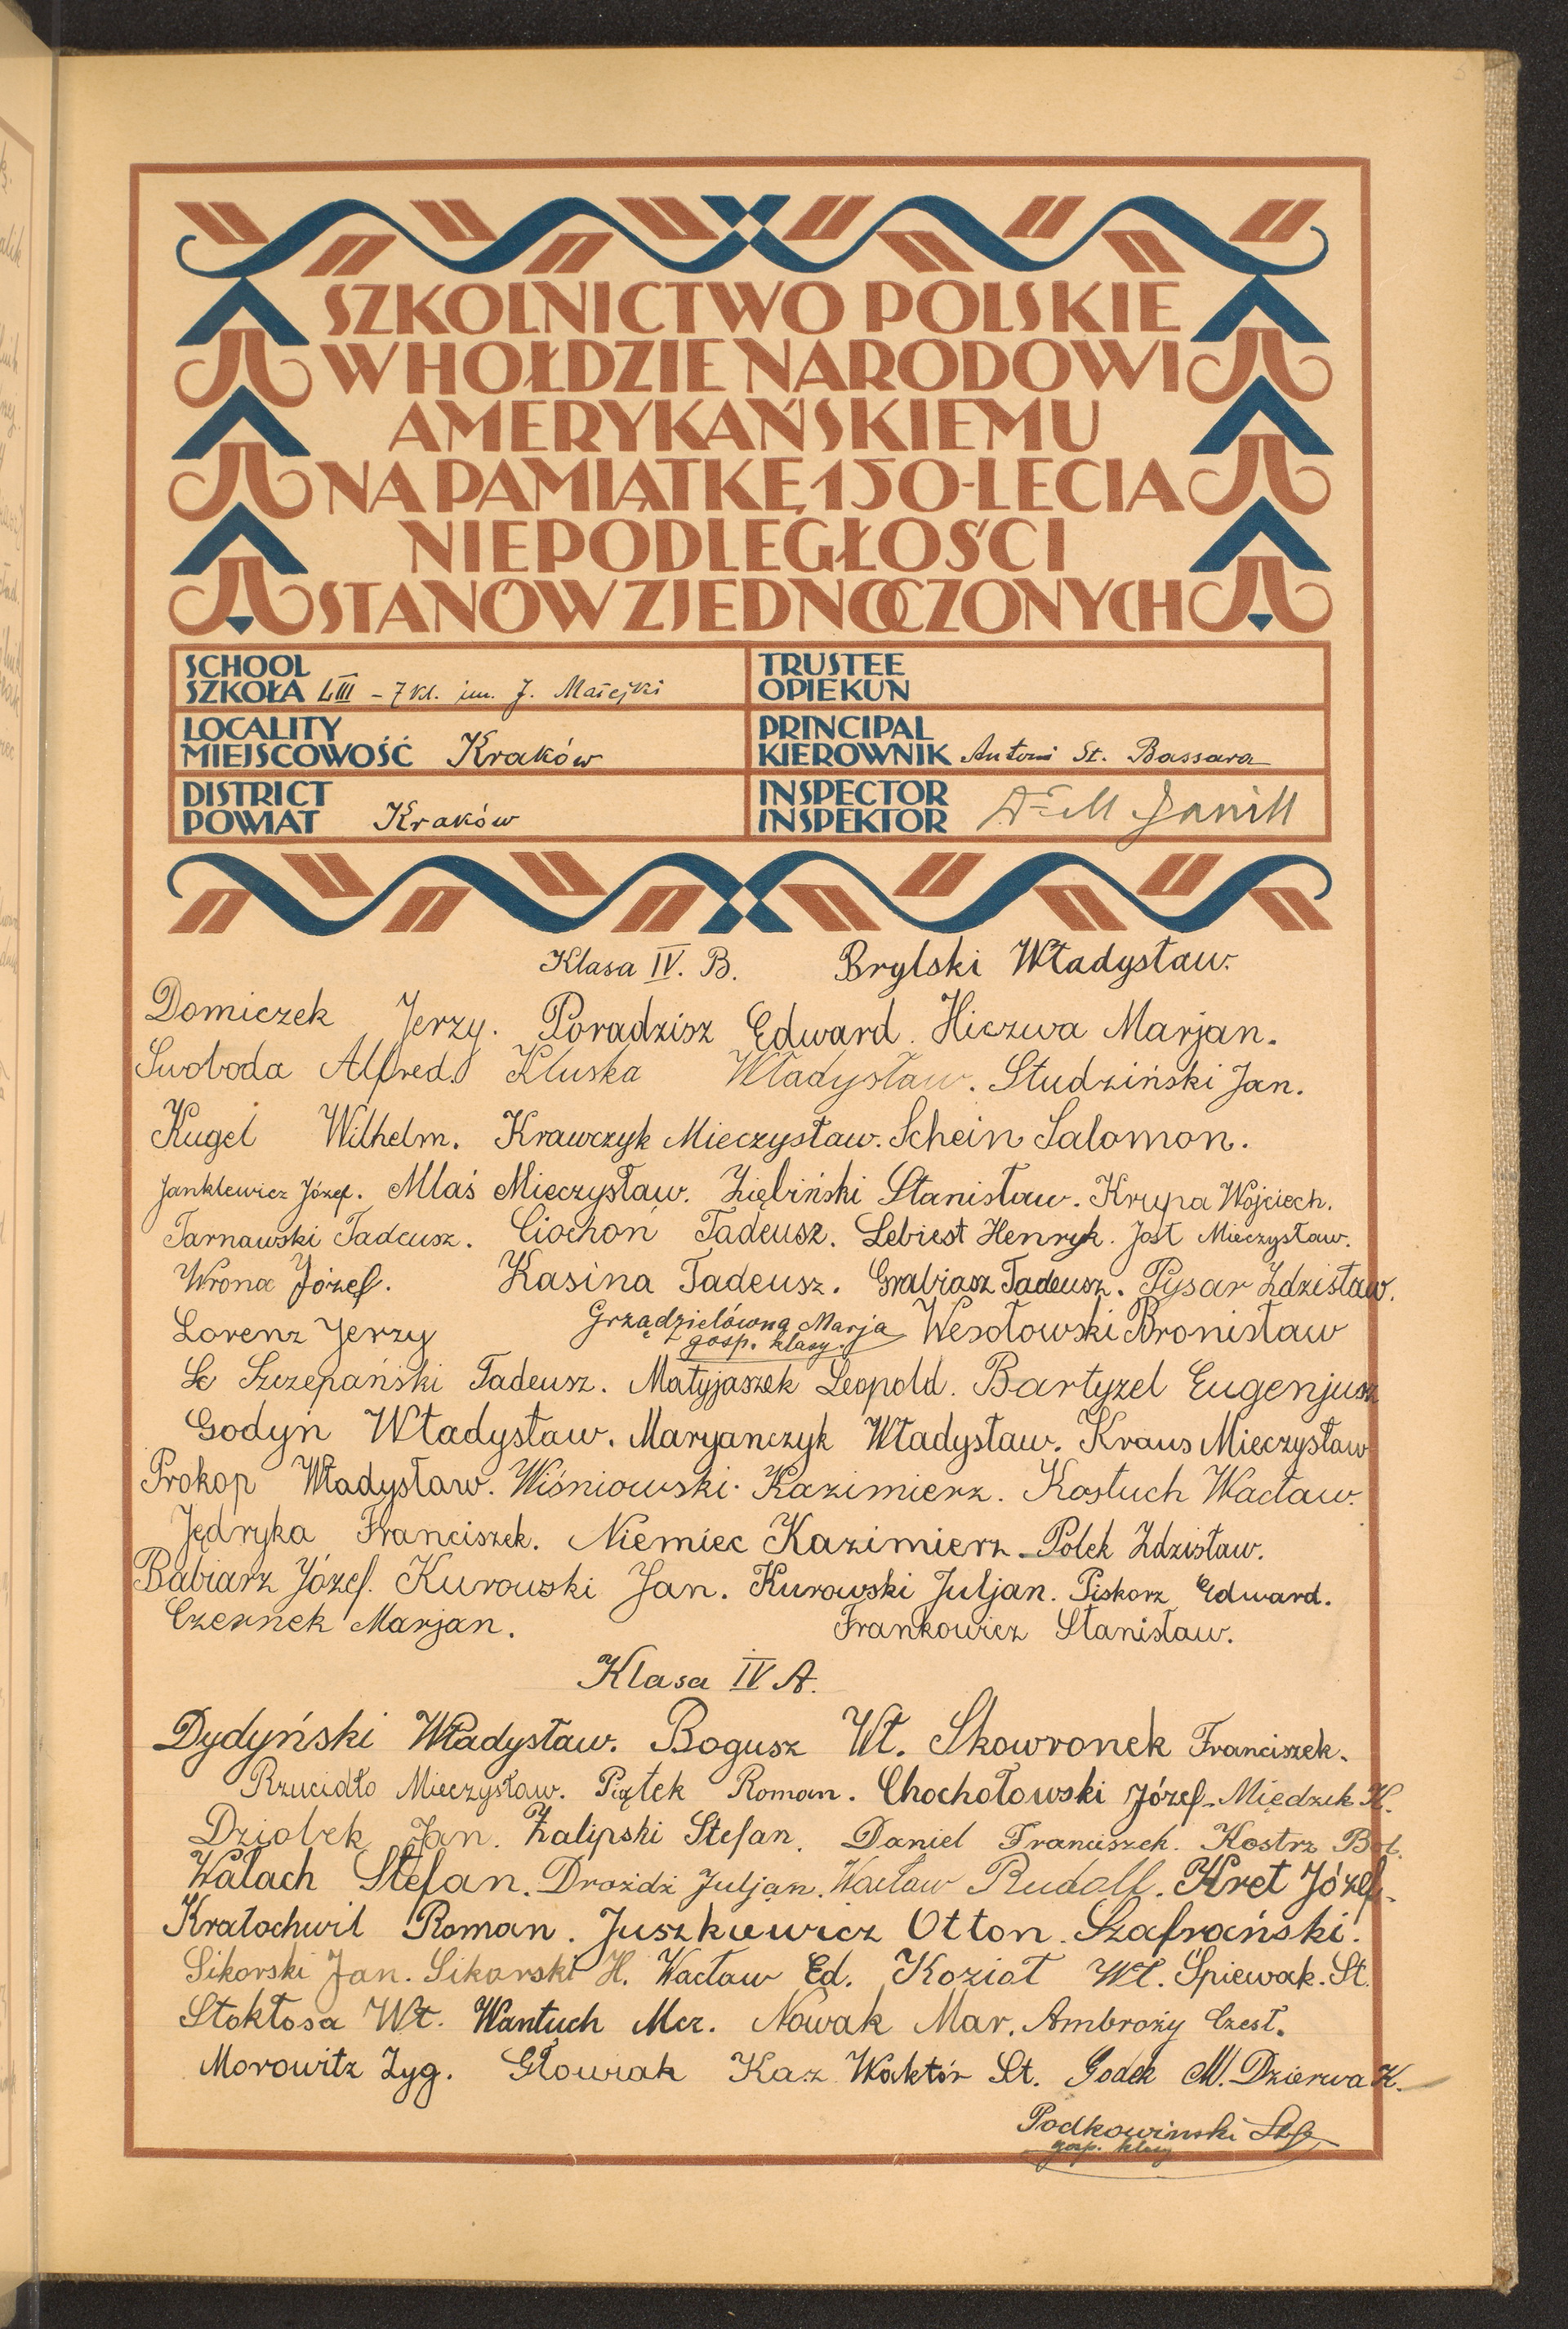 SZKOLNICTWO POLSKIE
W HOŁDZIE NARODOWI
AMERYKAŃSKIEMU
NA PAMIĄTKĘ 150-LECIA
NIEPODLEGŁOŚCI
STANÓW ZJEDNOCZONYCH
SCHOOL
SZKOŁA LIII - 7 kl. im. J. Matejki
TRUSTEE
OPIEKUN
LOCALITY
MIEJSCOWOŚĆ Kraków
PRINCIPAL
KIEROWNIK Antoni St. Bassara
DISTRICT
POWIAT Kraków
INSPECTOR
INSPEKTOR Dr M Janik
Klasa IV. B. Brylski Władysław.
Domiczek Jerzy. Poradzisz Edward. Hiczwa Marjan.
Swoboda Alfred. Kluska Władysław. Studziński Jan.
Kugel Wilhelm. Krawczyk Mieczysław. Schein Salomon.
Janklewicz Józef. Mlaś Mieczysław. Ziębiński Stanisław. Krupa Wojciech.
Tarnawski Tadeusz. Ciochoń Tadeusz. Lebiest Henryk. Jost Mieczysław.
Wrona Józef. Kasina Tadeusz. Grabiasz Tadeusz. Pysar Zdzisław.
Lorenz Jerzy Grządzielówna Marja Wesołowski Bronisław
gosp. klasy.
Sc Szczepański Tadeusz. Matyjaszek Leopold. Bartyzel Eugenjusz
Godyń Władysław. Maryanczyk Władysław. Kraus Mieczysław
Prokop Władysław. Wiśniowski Kazimierz. Kostuch Wacław.
Jędryka Franciszek. Niemiec Kazimierz. Polek Zdzisław.
Babiarz Józef. Kurowski Jan. Kurowski Juljan. Piskorz Edward.
Czernek Marjan. Frankowicz Stanisław.
Klasa IV A.
Dydyński Władysław. Bogusz Wł. Skowronek Franciszek.
Rzucidło Mieczysław. Piątek Roman. Chochołowski Józef. Miedzik K.
Dziobek Jan. Zalipski Stefan. Daniel Franciszek. Kostrz Bol.
Wałach Stefan. Drożdż Juljan. Wacław Rudolf. Kret Józef.
Kratochwil Roman. Juszkiewicz Otton. Szafrański.
Sikorski Jan. Sikorski H. Wacław Ed. Kozioł Wł. Śpiewak. St.
Stokłosa Wł. Wantuch Mcz. Nowak Mar. Ambroży Czesł.
Morowitz Zyg. Głowiak Kaz Waktór St. Godek M. Dzierwa K.
Podkowinski
gosp. klasy